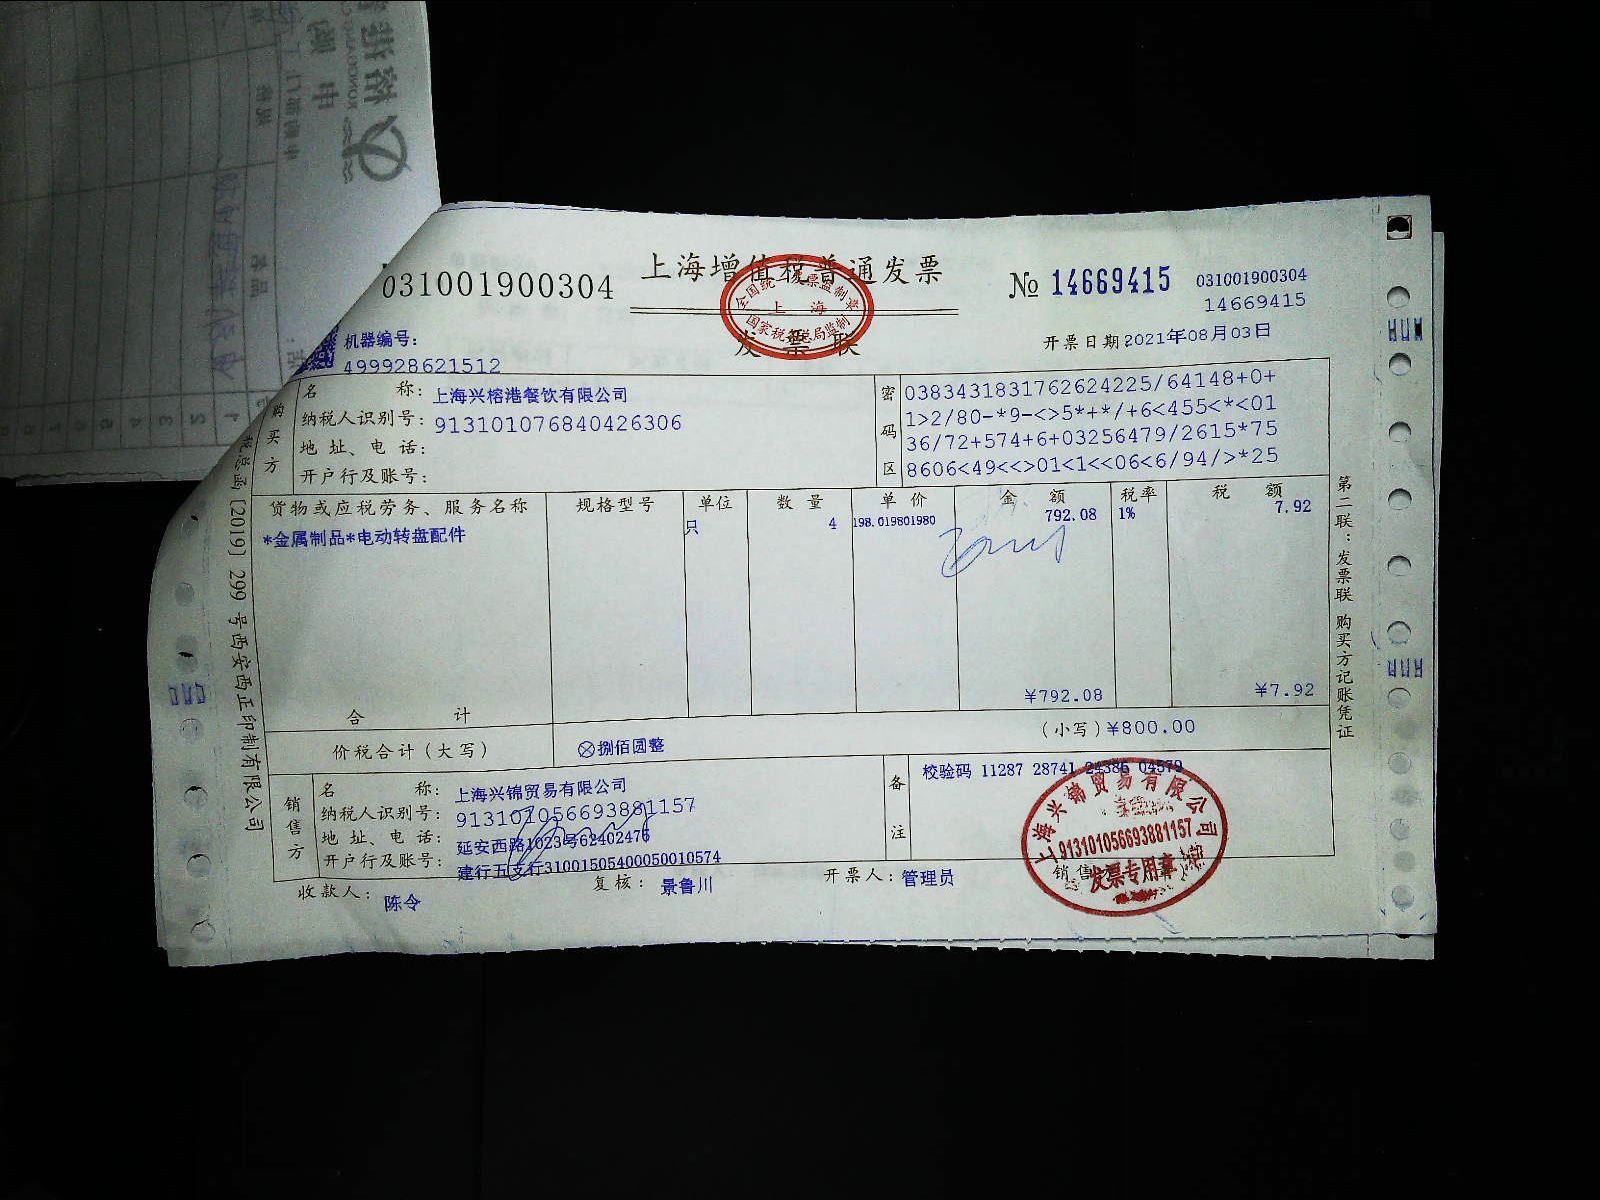 031001900304
上海增值税普通发票
发票联
全国统一发票监制章
上海
国家税务总局监制
№ 14669415
031001900304
14669415
机器编号:
499928621512
开票日期 2021年08月03日
购买方
名 称: 上海兴榕港餐饮有限公司
纳税人识别号: 913101076840426306
地址、电话:
开户行及账号:
密码区
0383431831762624225/64148+0+
1>2/80-*9-<>5*+*/+6<455<*<01
36/72+574+6+03256479/2615*75
8606<49<<>01<1<<06<6/94/>*25
货物或应税劳务、服务名称 规格型号 单位 数量 单价 金额 税率 税额
*金属制品*电动转盘配件 只 4 198.019801980 792.08 1% 7.92
合计 ¥792.08 ¥7.92
价税合计(大写) ⊗捌佰圆整 (小写)¥800.00
销售方
名 称: 上海兴锦贸易有限公司
纳税人识别号: 913101056693881157
地址、电话: 延安西路1023号62402476
开户行及账号: 建行五支行31001505400050010574
备注
校验码 11287 28741 24386 04579
收款人: 陈令
复核: 景鲁川
开票人: 管理员
销售
上海兴锦贸易有限公司
913101056693881157
发票专用章
税总函[2019]299号西安西正印制有限公司
第二联:发票联 购买方记账凭证